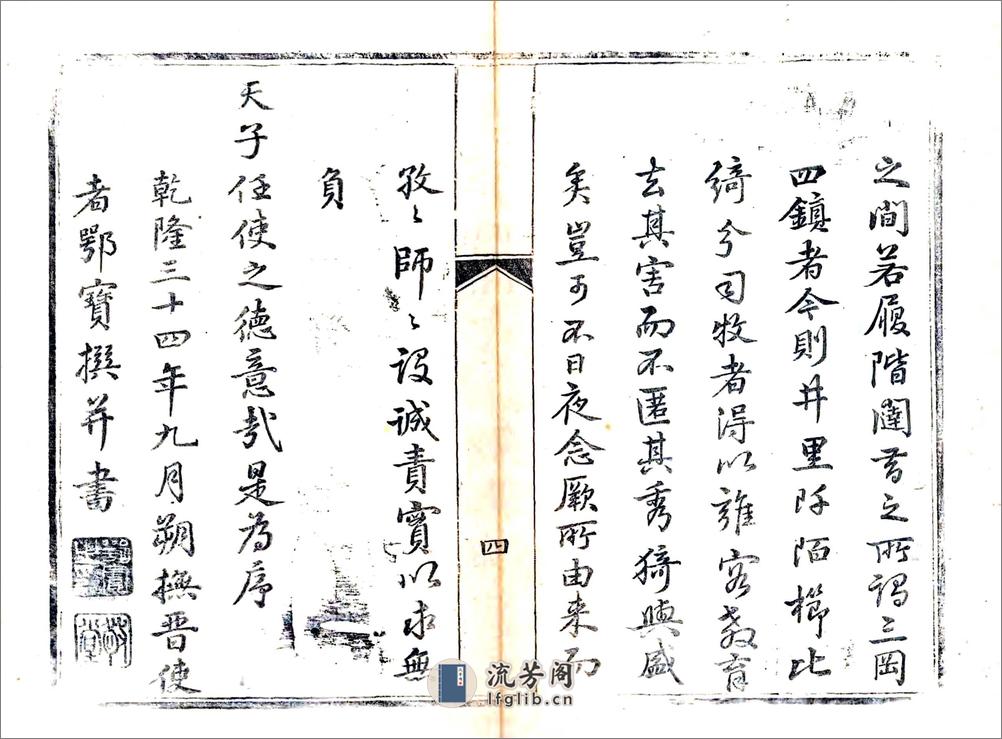 之間若履階闥昔之所謂三岡
四鎮者今則井里阡陌櫛比
綺分司牧者得以雍容教育
去其害而不匿其秀猗與盛
矣豈可不日夜念厥所由来而
四
孜〻師〻設誠責實以求無
負
天子任使之德意哉是為序
乾隆三十四年九月朔撫晋使
者鄂寶撰并書
流芳阁
lfglib.cn